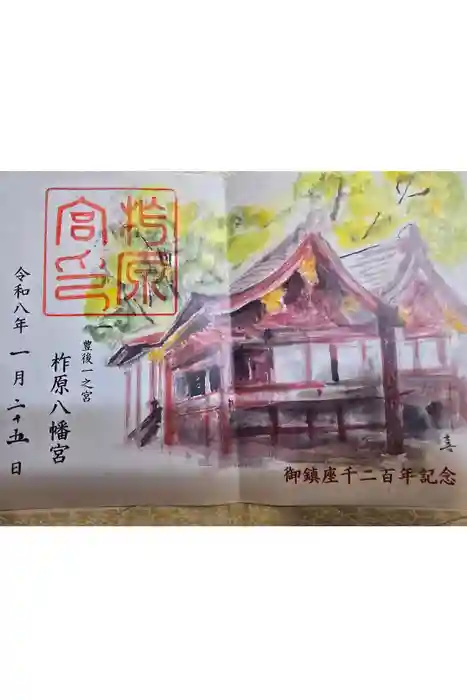 柞原
宮印
豊後一之宮
柞原八幡宮
令和八年 一月 二十五 日
喜
御鎮座千二百年記念